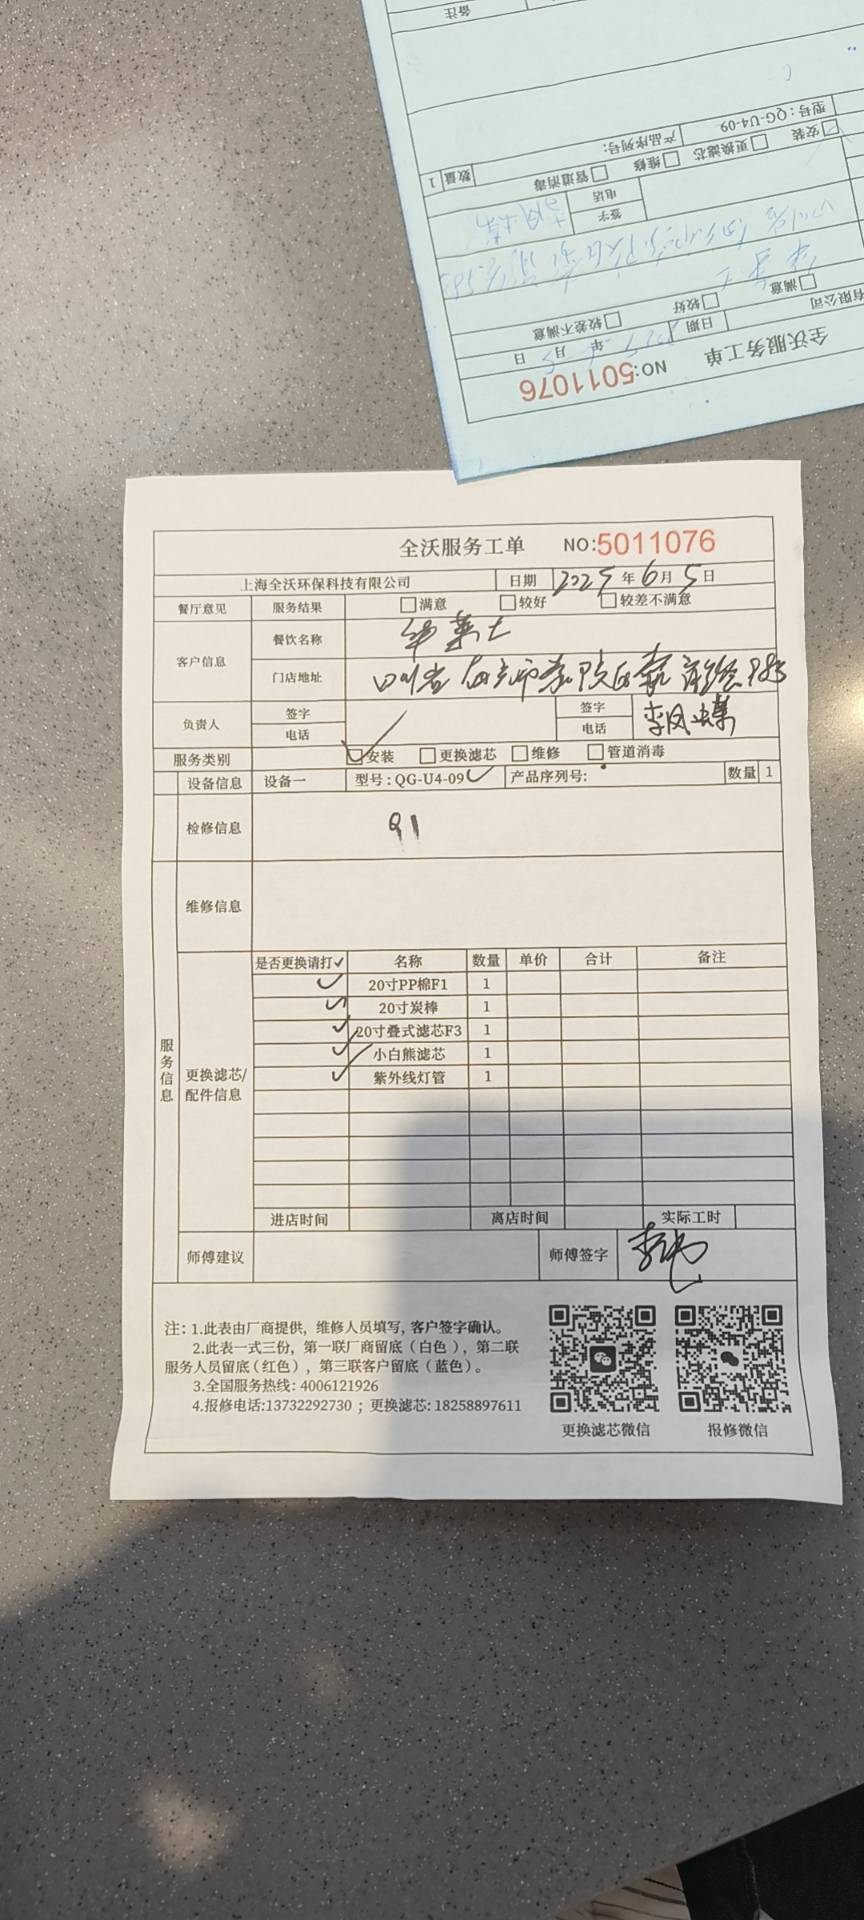 备注
型号：QG-U4-09
产品序列号：
数量 1
安装 更换滤芯 维修 管道消毒
签字
电话
满意 较好 较差不满意
有限公司
日期 年 月 日
全沃服务工单 NO:5011076
全沃服务工单 NO:5011076
上海全沃环保科技有限公司 日期 2025年6月5日
餐厅意见 服务结果 满意 较好 较差不满意
客户信息 餐饮名称 华莱士
门店地址 四川省
负责人 签字 签字 李凤
电话 电话
服务类别 ✓安装 更换滤芯 维修 管道消毒
设备信息 设备一 型号：QG-U4-09✓ 产品序列号: 数量 1
检修信息 91
维修信息
服务信息
更换滤芯/配件信息
是否更换请打✓ 名称 数量 单价 合计 备注
✓ 20寸PP棉F1 1
✓ 20寸炭棒 1
✓ 20寸叠式滤芯F3 1
✓ 小白熊滤芯 1
✓ 紫外线灯管 1
进店时间 离店时间 实际工时
师傅建议 师傅签字 李
注：1.此表由厂商提供，维修人员填写，客户签字确认。
2.此表一式三份，第一联厂商留底（白色），第二联
服务人员留底(红色)，第三联客户留底（蓝色）。
3.全国服务热线：4006121926
4.报修电话:13732292730；更换滤芯: 18258897611
更换滤芯微信 报修微信